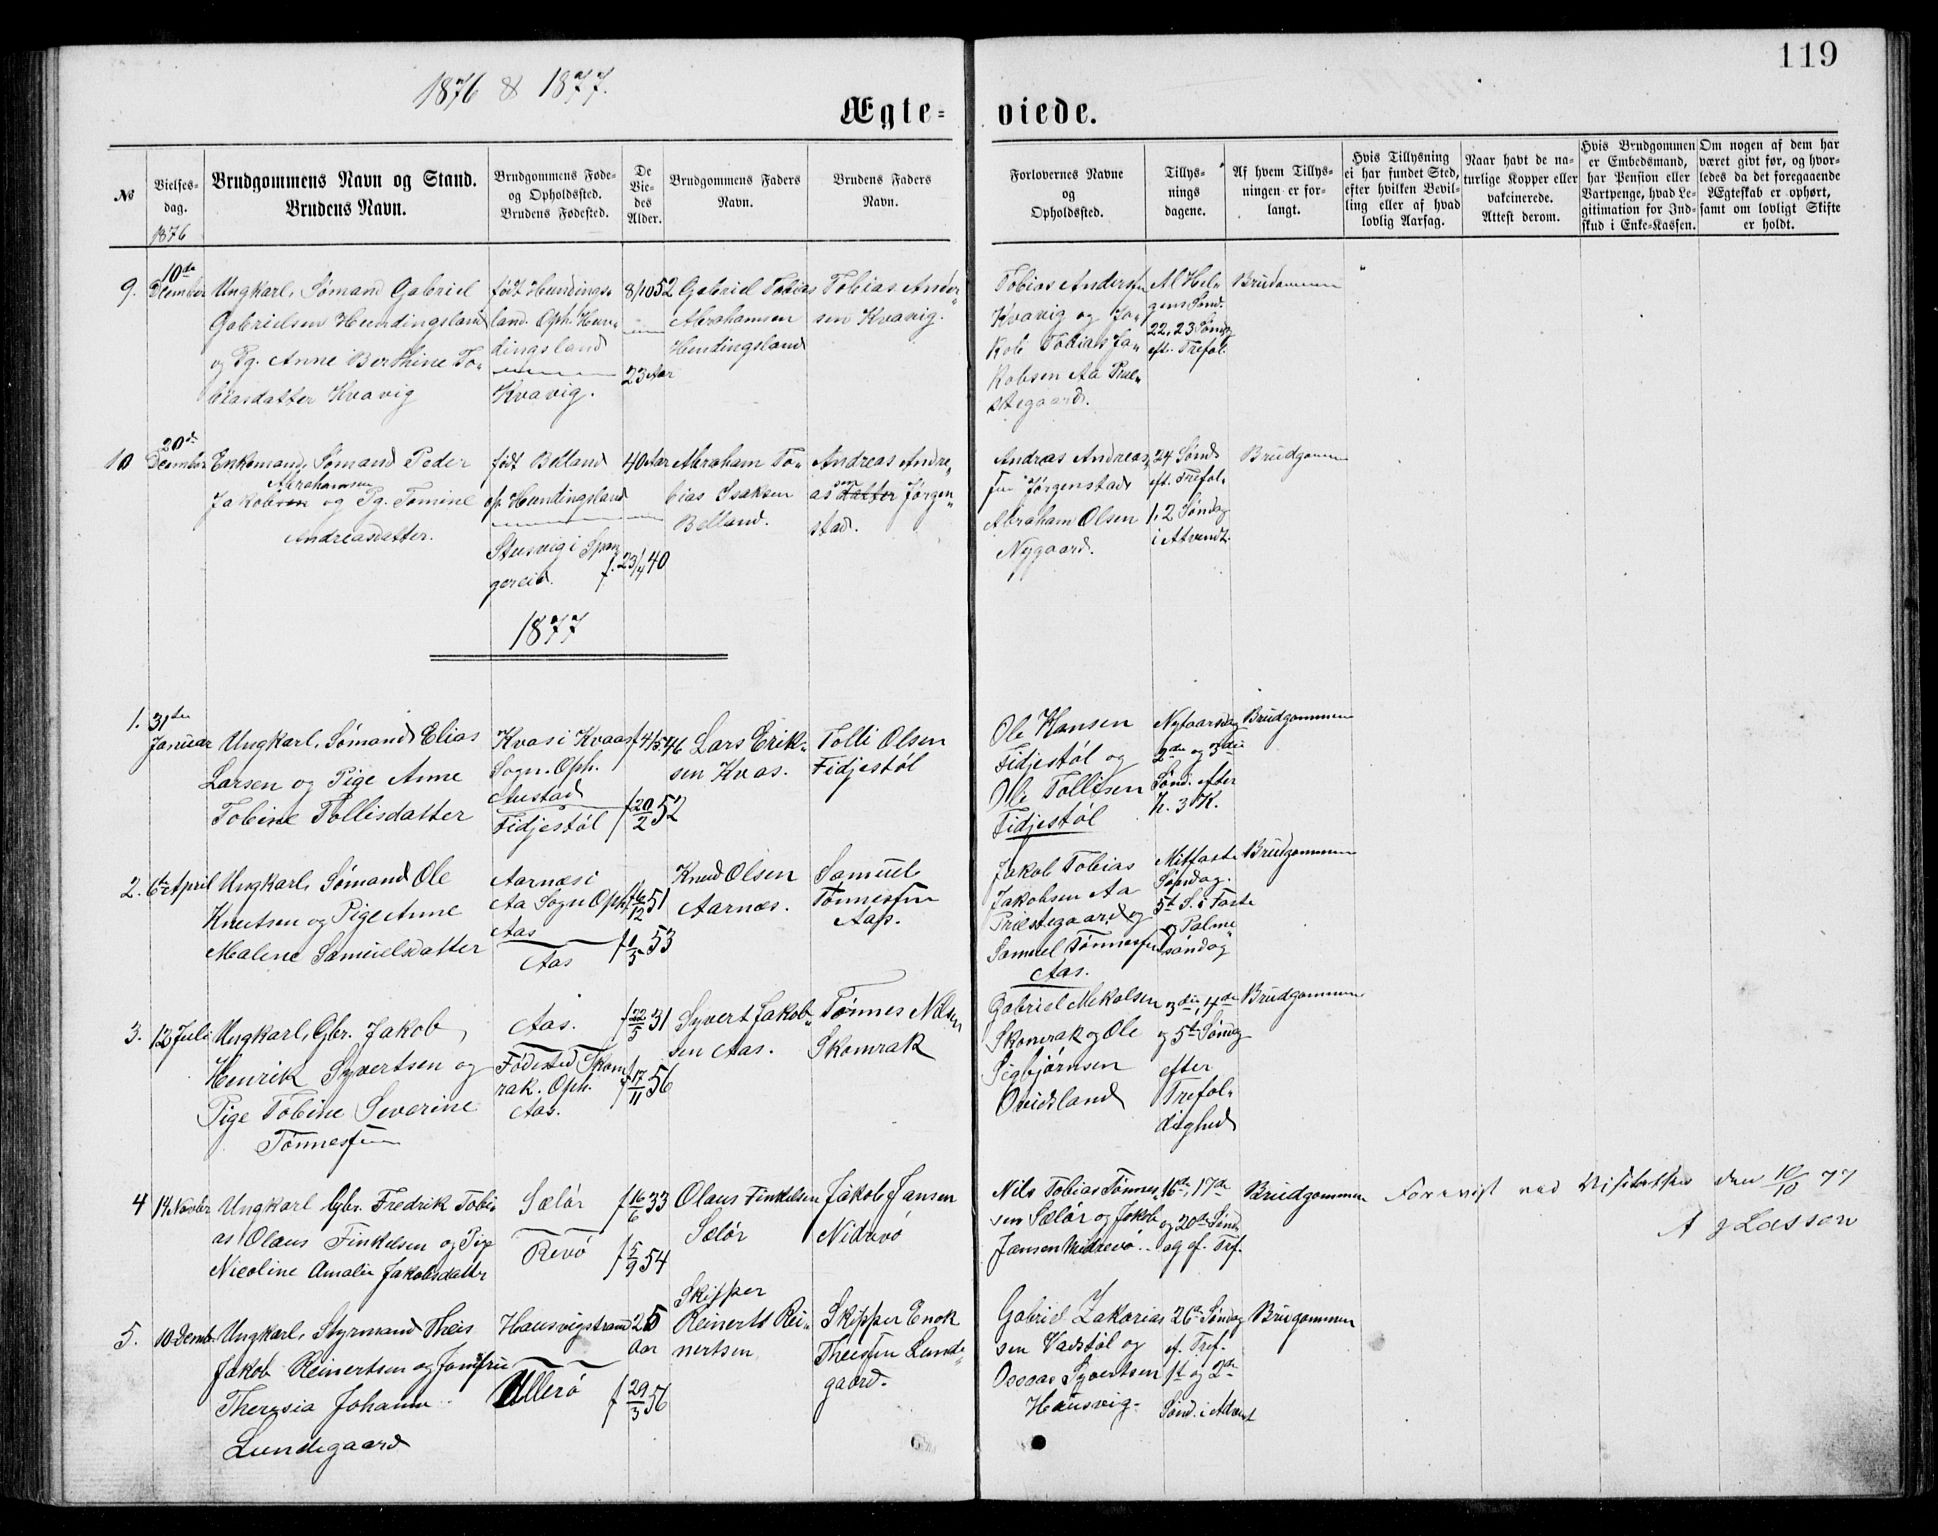 119
1876 & 1877.
Ægte- viede.
№
Vielses-
dag.
1876
Brudgommens Navn og Stand.
Brudens Navn.
Brudgommens Føde-
og Opholdssted.
Brudens Fødested.
De
Vie-
des
Alder.
Brudgommens Faders
Navn.
Brudens Faders
Navn.
Forlovernes Navne
og
Opholdssted.
Tillys-
nings
dagene.
Af hvem Tillys-
ningen er for-
langt.
Hvis Tillysning
ei har fundet Sted,
efter hvilken Bevil-
ling eller af hvad
lovlig Aarsag.
Naar havt de na-
turlige Kopper eller
vakcinerede.
Attest derom.
Hvis Brudgommen
er Embedsmand,
har Pension eller
Vartpenge, hvad Le-
gitimation for Ind-
skud i Enke-Kassen.
Om nogen af dem har
været givt før, og hvor-
ledes da det foregaaende
Ægteskab er ophørt,
samt om lovligt Skifte
er holdt.
9.
10de
December
Ungkarl, Sømand Gabriel
Gabrielsen Hundingsland
og Pg. Anne Berthine To-
biasdatter Kvavig
født Hundings-
land. Oph. Hun-
dingsland
Kvavig.
8/10 52
23 Aar
Gabriel Tobias
Abrahamsen
Hundingsland
Tobias Ander-
sen Kvavig.
Tobias Andersen
Kvavig og Ja-
kob Tobias Ja-
kobsen Aa Præ-
stegaard.
Al Hel-
gens Sønd.
22, 23 Søndg
eft. Trefol.
Brudgommen
10
20de
December
Enkemand, Sømand Peder
Abrahamsen
Jakobsen og Pg. Tomine
Andreasdatter.
født Belland
op. Hundingsland
Stusvig i Span-
gereid.
40 Aar
f. 23/4 40
Abraham To-
bias Isaksen
Belland.
Andreas Andre-
assen datter Jørgen-
stad.
Andreas Andreas-
sen Jørgenstad
Abraham Olsen
Nygaard.
24 Sønd
eft. Trefol.
1, 2 Søndag
i Atvendt.
Brudgommen
1877
1.
31te
Januar
Ungkarl, Sømand Elias
Larsen og Pige Anne
Tobine Tollisdatter
Kvas i Kvaas
Sogn. Oph.
Austad
Fidjestøl
f 4/5 46
f 20/2 52
Lars Erik-
sen Kvas.
Tolli Olsen
Fidjestøl
Ole Hansen
Fidjestøl og
Ole Tollisen
Fidjestøl
Nytaarsdag
2de og 3die
Sønd. efter
h. 3 K.
Brudgommen
2.
6te April
Ungkarl, Sømand Ole
Knutsen og Pige Anne
Malene Samuelsdatter
Aarnæs i
Aa Sogn Oph.
Aas
Aas
f 16/12 51
f 1/3 53
Knud Olsen
Aarnæs.
Samuel
Tønnessen
Aas.
Jakob Tobias
Jakobsen Aa
Præstegaard og
Samuel Tønnessen
Aas.
Mitfaste
Søndag.
5te S. i Faste
og Palme
søndag
Brudgommen
3.
12 Juli
Ungkarl, Gbr. Jakob
Henrik Syvertsen og
Pige Tobine Severine
Tønnessen
Aas.
Fødested Skom
rak. Oph.
Aas.
f 22/5 31
f 17/11 56
Syvert Jakob-
sen Aas.
Tønnes Nilsen
Skomrak
Gabriel Mekalsen
Skomrak og Ole
Sigbjørnsen
Ovidsland
3die, 4de
og 5te Søndag
efter
Trefol-
dighed
Brudgommen
4
14 Novbr
Ungkarl Gbr. Fredrik Tobi-
as Olaus Finkelsen og Pige
Nicoline Amalie Jakobsdatter
Sælør
Revø
f 16/6 33
f 5/9 54
Olaus Finkelsen
Sælør
Jakob Jansen
Nidrevø
Nils Tobias Tønnes-
sen Sælør og Jakob
Jansen Nidrevø.
16de, 17de
og 20de Sønd
ef. Tref.
Brudgommen
Forevist ved Visitatsen den 10/10 77
A J Lassen
5.
10 Decmb.
Ungkarl, Styrmand Theis
Jakob Reinertsen og Jomfru
Theresia Johanne
Lundegaard
Hausvigstrand
Ullerø
25
Aar
f 29/3 56
Skipper
Reinertt Rei-
nertsen
Skipper Enok
Theissen Lunde-
gaard.
Gabriel Zakarias
sen Vadstøl og
Osvas Syvertsen
Hausvig.
26de Søndag
ef. Tref.
1st og 2de
Sønd. i Advent
Brudgommen